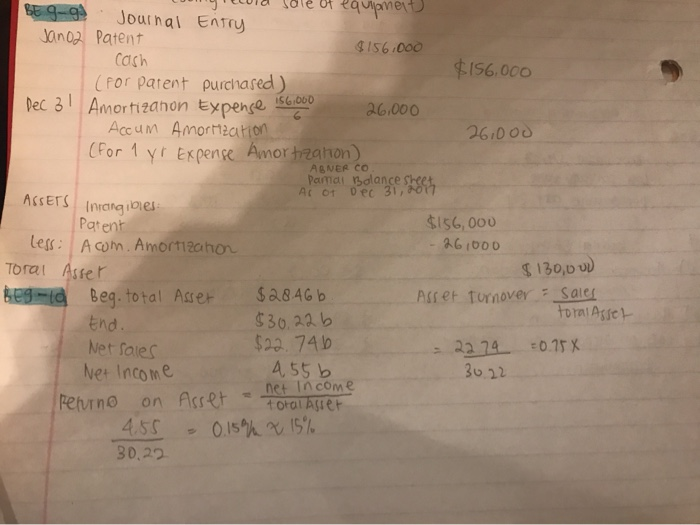 BE 9-9 Journal Entry record sale of equipment)
Jan 02 Patent $156,000
Cash $156,000
(For Patent purchased)
Dec 31 Amortization Expense 156,000/6 26,000
Accum Amortization 26,000
(For 1 yr Expense Amortization)
ABNER CO
Partial Balance Sheet
As of Dec 31, 2017
ASSETS Intangibles:
Patent $156,000
Less: Acom. Amortization - 26,000
Total Asset $130,000
BE9-10 Beg. total Asset $28.46 b Asset turnover = Sales/total Asset
End. $30.22 b
Net sales $22.74 b = 22.74/30.22 = 0.75 X
Net Income 4.55 b
Return on Asset = net Income/total Asset
4.55/30.22 = 0.15% ≈ 15%